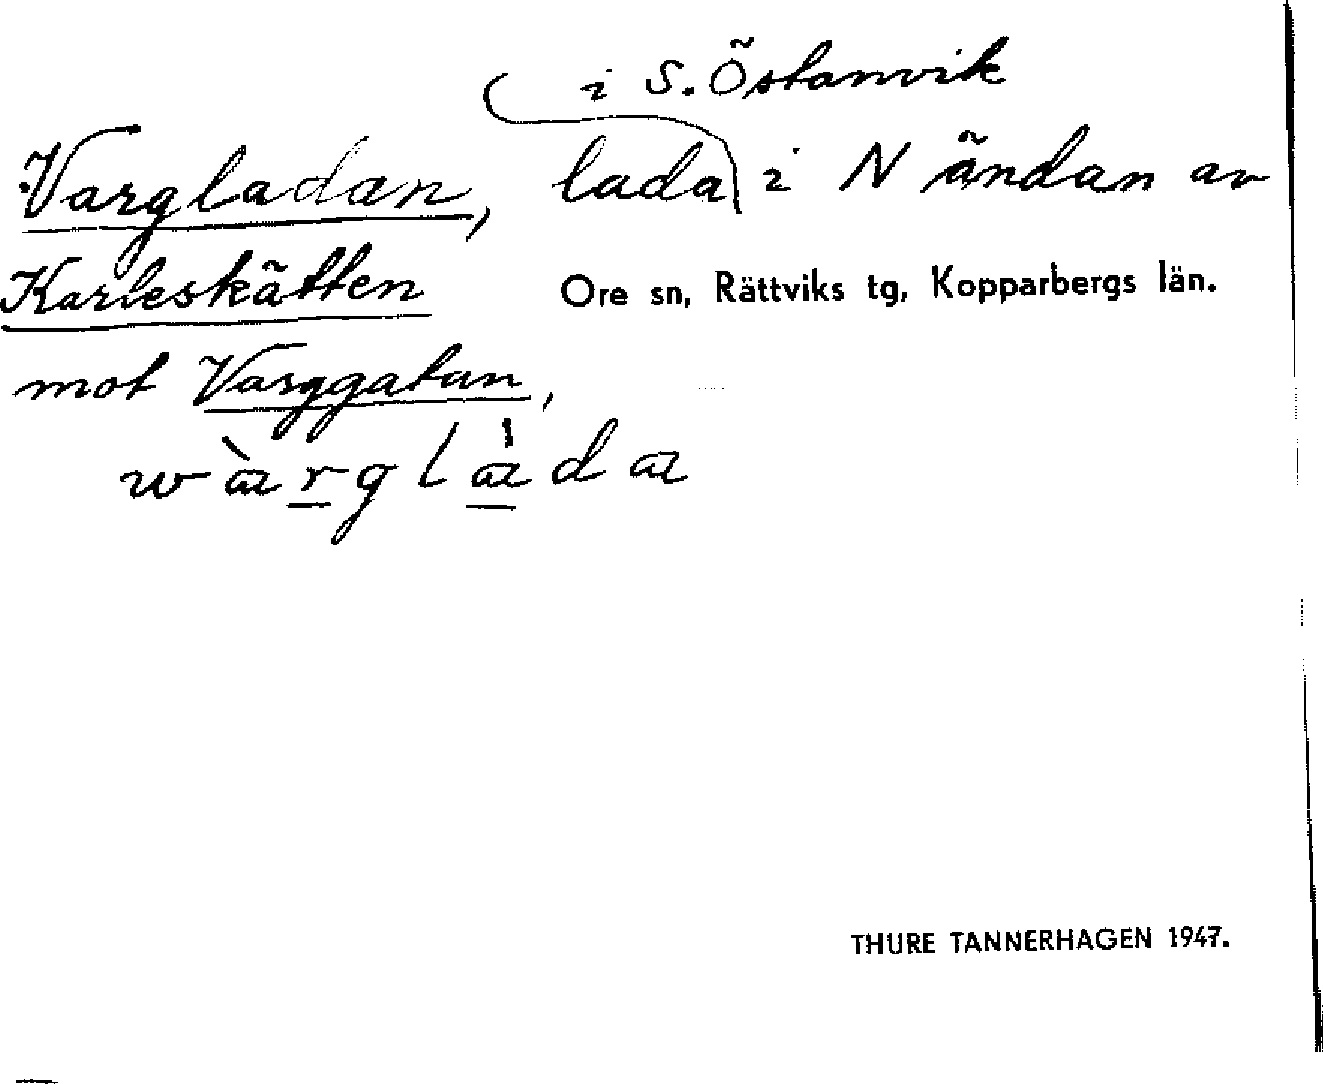 i S. Östanvik
Vargladan, lada i N ändan av
Karleskätten Ore sn, Rättviks tg, Kopparbergs län.
mot Varggatun,
wàrglàda
THURE TANNERHAGEN 1947.